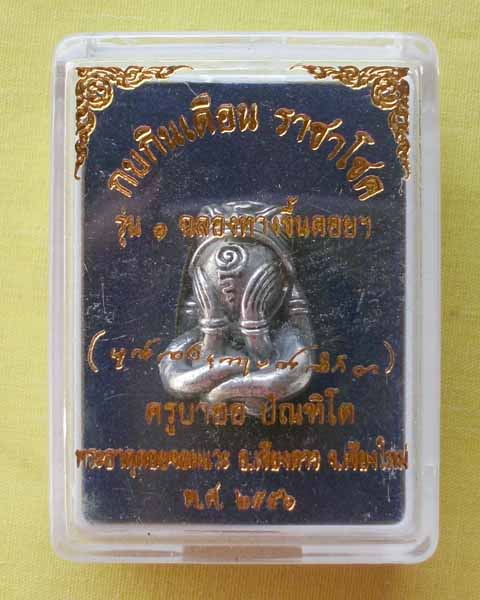 กบกินเดือน ราชาโชค
รุ่น ๑ ฉลองทางขึ้นดอยฯ
ครูบาออ ปัณฑิโต
พระธาตุดอยจอมแวะ อ.เชียงดาว จ.เชียงใหม่
พ.ศ. ๒๕๕๖